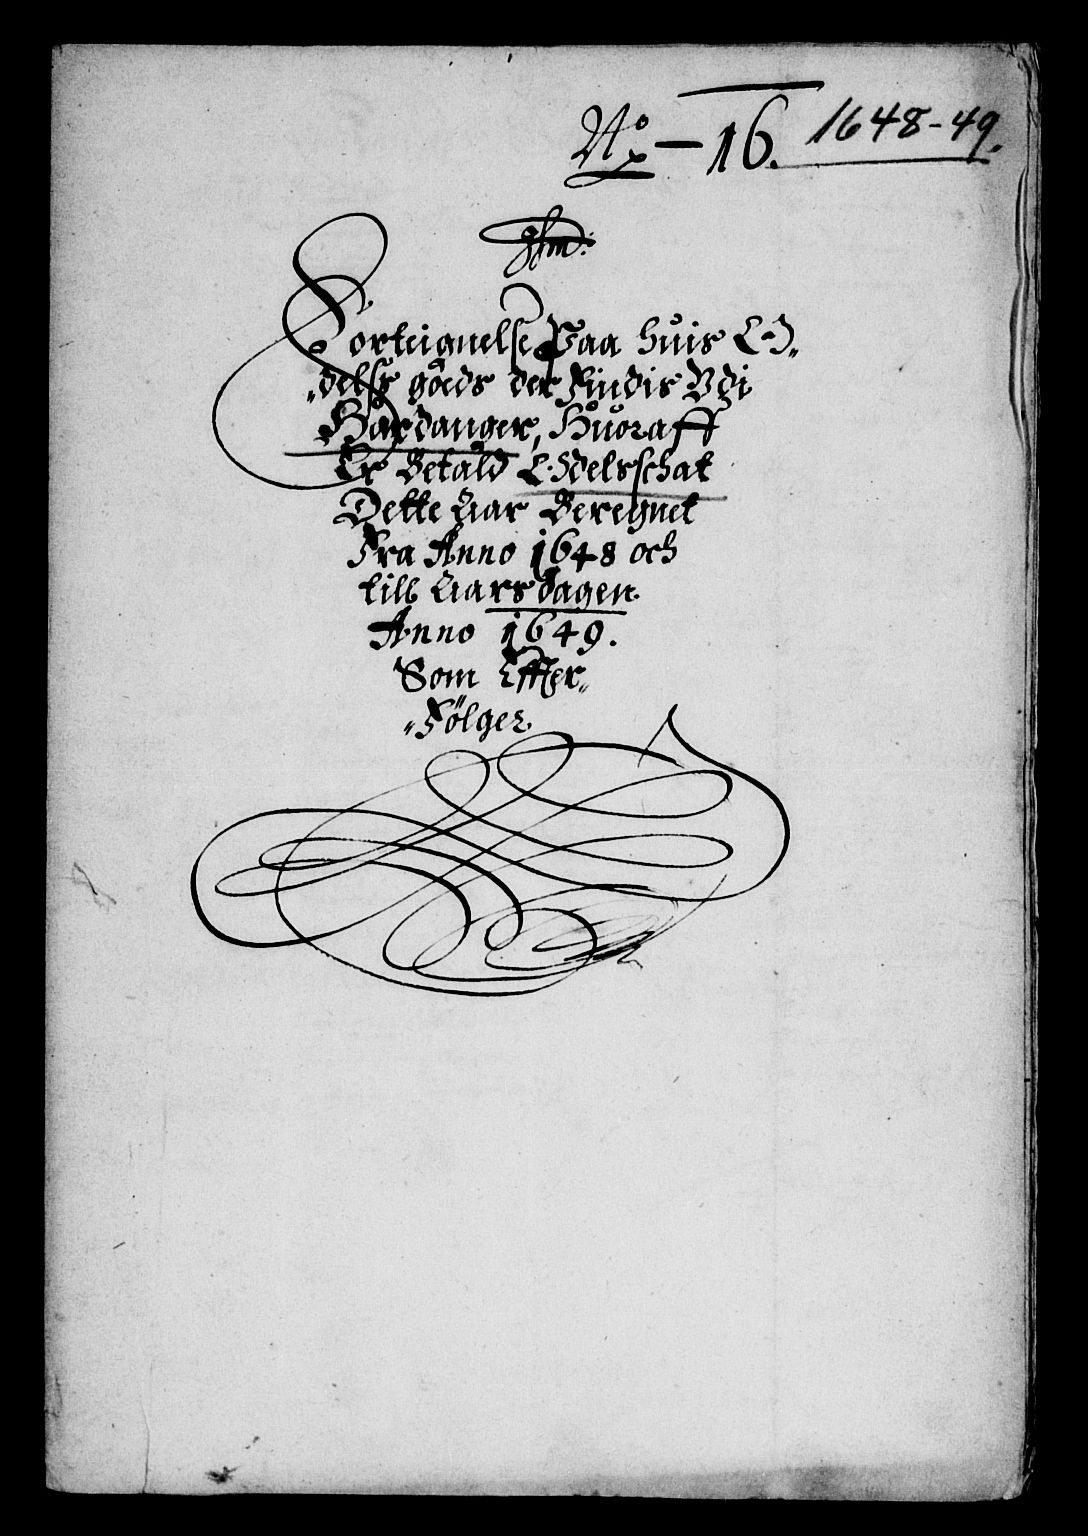 No 16. 1648-49.
Forteignelse Paa huis O-
delss goeds der Findis Vdi
Hardanger, Huoraff
Er Betald Odelsschat
Dette Aar Beregnet
Fra Anno 1648 och
till Aarsdagen
Anno 1649.
Som Effter
Fölger